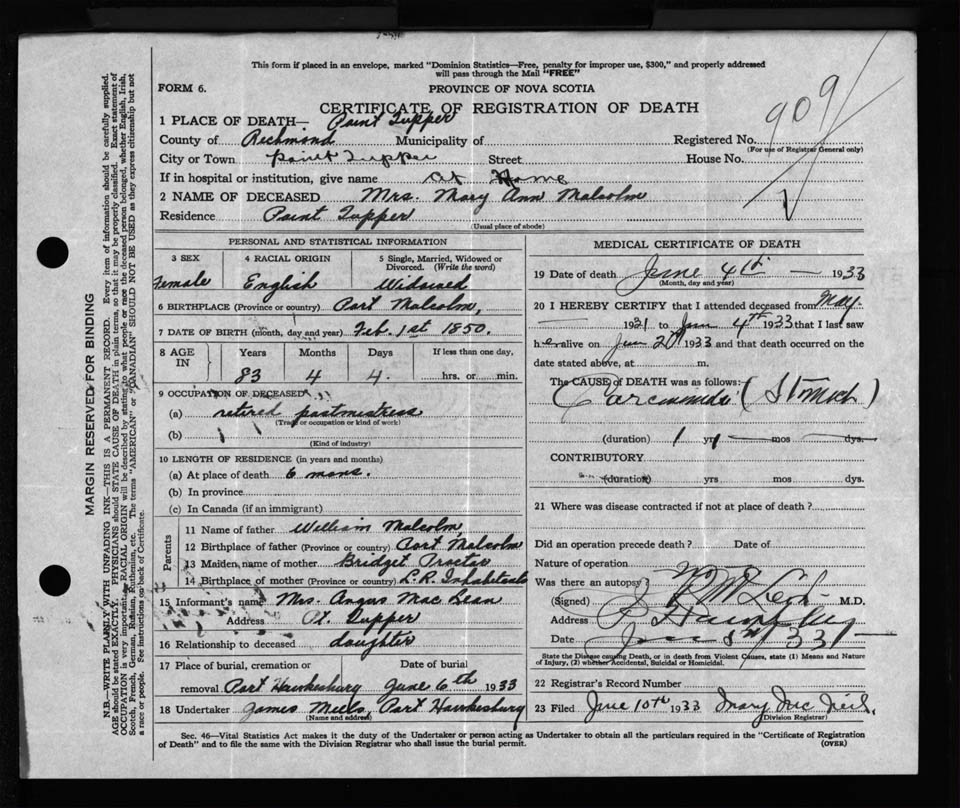 This form if placed in an envelope, marked "Dominion Statistics—Free, penalty for improper use, $300," and properly addressed
will pass through the Mail "FREE"
FORM 6.
PROVINCE OF NOVA SCOTIA
CERTIFICATE OF REGISTRATION OF DEATH
909
1 PLACE OF DEATH— Point Tupper
County of Richmond Municipality of Registered No.
(For use of Registrar General only)
City or Town Point Tupper Street House No.
If in hospital or institution, give name at Home
2 NAME OF DECEASED Mrs. Mary Ann Malcolm
Residence Point Tupper
(Usual place of abode)
PERSONAL AND STATISTICAL INFORMATION
3 SEX 4 RACIAL ORIGIN 5 Single, Married, Widowed or
Divorced. (Write the word)
Female English Widowed
6 BIRTHPLACE (Province or country) Port Malcolm,
7 DATE OF BIRTH (month, day and year) Feb. 1st 1850.
8 AGE IN Years Months Days If less than one day,
83 4 4. hrs. or min.
9 OCCUPATION OF DECEASED
(a) retired postmistress
(Trade or occupation or kind of work)
(b)
(Kind of industry)
10 LENGTH OF RESIDENCE (in years and months)
(a) At place of death 6 mons.
(b) In province
(c) In Canada (if an immigrant)
Parents
11 Name of father William Malcolm,
12 Birthplace of father (Province or country) Port Malcolm
13 Maiden name of mother Bridget Proctor
14 Birthplace of mother (Province or country) L.R. Inhabitants
15 Informant's name Mrs. Angus MacBean
Address Pt. Tupper
16 Relationship to deceased daughter
17 Place of burial, cremation or Date of burial
removal Port Hawkesbury June 6th 1933
18 Undertaker James Mills, Port Hawkesbury
(Name and address)
MEDICAL CERTIFICATE OF DEATH
19 Date of death June 4th — 1933
(Month, day and year)
20 I HEREBY CERTIFY that I attended deceased from May
— 1931 to June 4th 1933 that I last saw
her alive on June 2d 1933 and that death occurred on the
date stated above, at m.
The CAUSE of DEATH was as follows:
(Stomach)
(duration) 1 yrs — mos — dys.
CONTRIBUTORY
(duration) yrs mos dys.
21 Where was disease contracted if not at place of death?
Did an operation precede death? Date of
Nature of operation
Was there an autopsy?
(Signed) M.D.
Address
Date 33
State the Disease causing Death, or in death from Violent Causes, state (1) Means and Nature
of Injury, (2) whether Accidental, Suicidal or Homicidal.
22 Registrar's Record Number
23 Filed June 10th 1933 Mary Mc Neil,
(Division Registrar)
Sec. 46—Vital Statistics Act makes it the duty of the Undertaker or person acting as Undertaker to obtain all the particulars required in the "Certificate of Registration
of Death" and to file the same with the Division Registrar who shall issue the burial permit. (OVER)
MARGIN RESERVED FOR BINDING
N.B.—WRITE PLAINLY WITH UNFADING INK—THIS IS A PERMANENT RECORD. Every item of information should be carefully supplied.
AGE should be stated EXACTLY. PHYSICIANS should STATE CAUSE OF DEATH in plain terms, so that it may be properly classified. Exact statement of
OCCUPATION is very important. RACIAL ORIGIN will be described by stating to what people or race the deceased person belonged, whether English, Irish,
Scotch, French, German, Russian, Ruthenian, etc. The terms "AMERICAN" or "CANADIAN" SHOULD NOT BE USED as they express citizenship but not
a race or people. See instructions on back of Certificate.